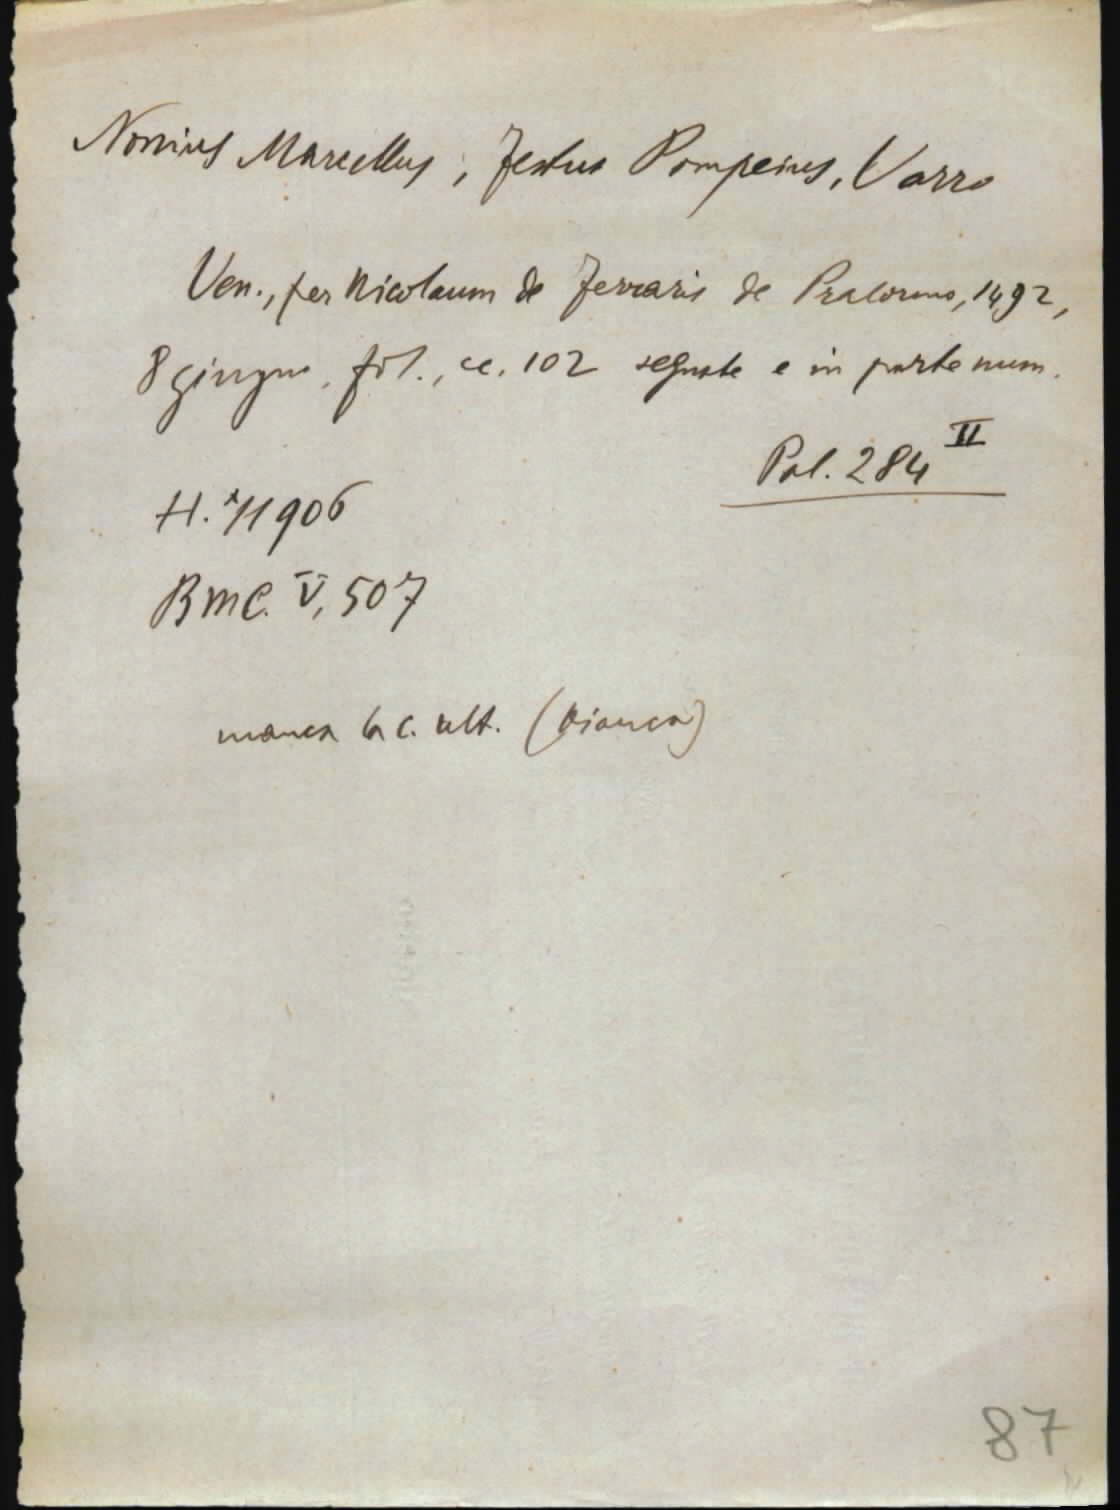 Nonius Marcellus, Festus Pompeius, Varro
Ven., per Nicolaum de Ferraris de Pralormo, 1492,
8 giugno, fol., cc. 102 segnate e in parte num.
Pal. 284 II
H. *11906
BMC. V, 507
manca la c. ult. (bianca)
87